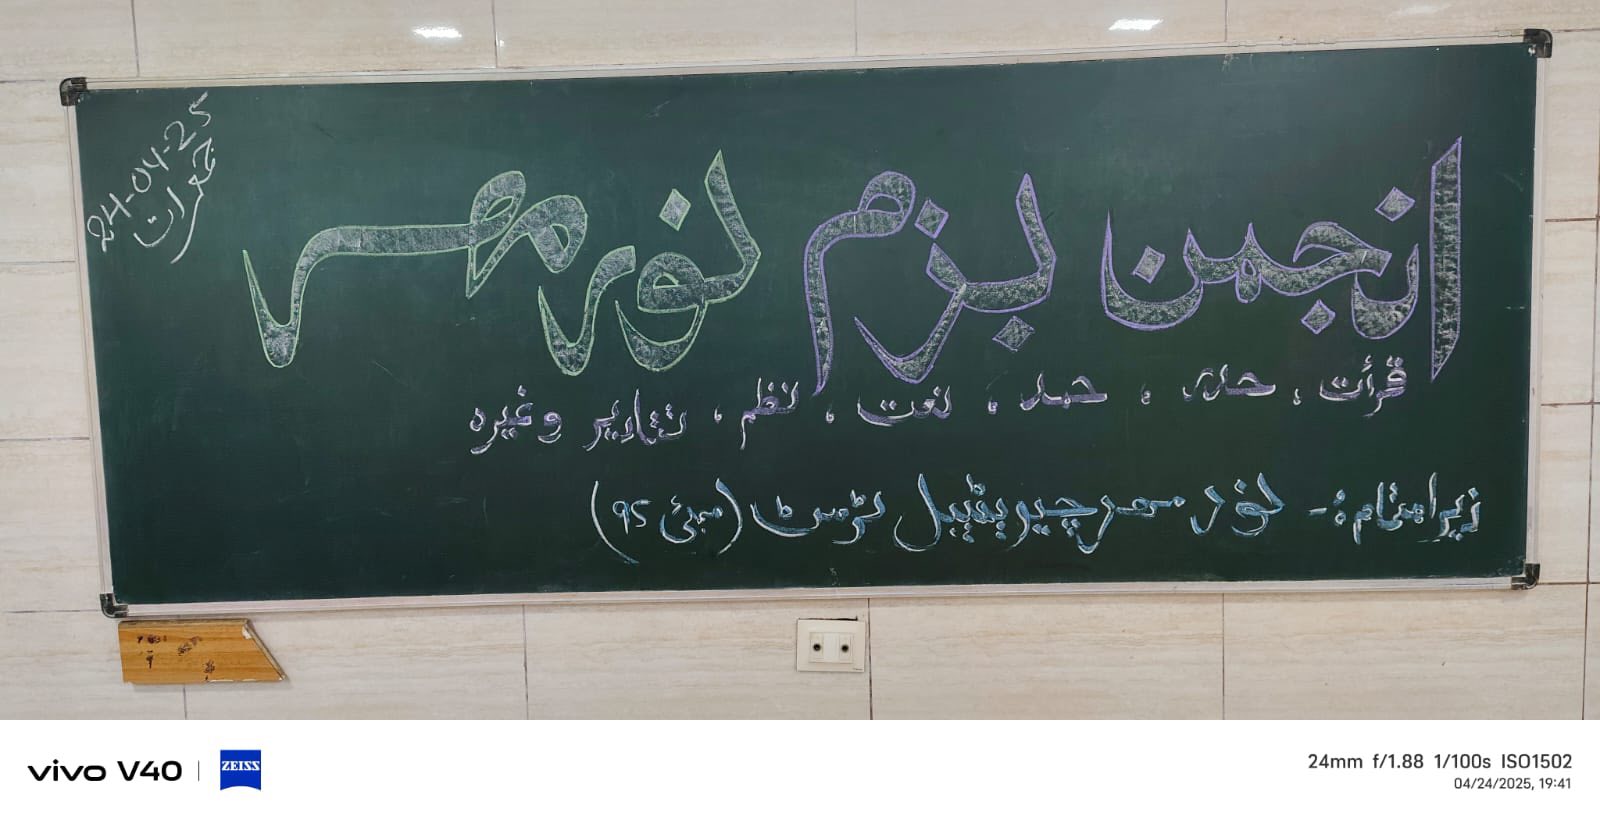 24-04-25
جمعرات
انجمن بزم نور مہر
قرأت ، حدر ، حمد ، نعت ، نظم ، تقاریر وغیرہ
زیر اہتمام :- نور مہر چیریٹیبل ٹرسٹ (ممبئی 95)
vivo V40 | ZEISS
24mm f/1.88 1/100s ISO1502
04/24/2025, 19:41